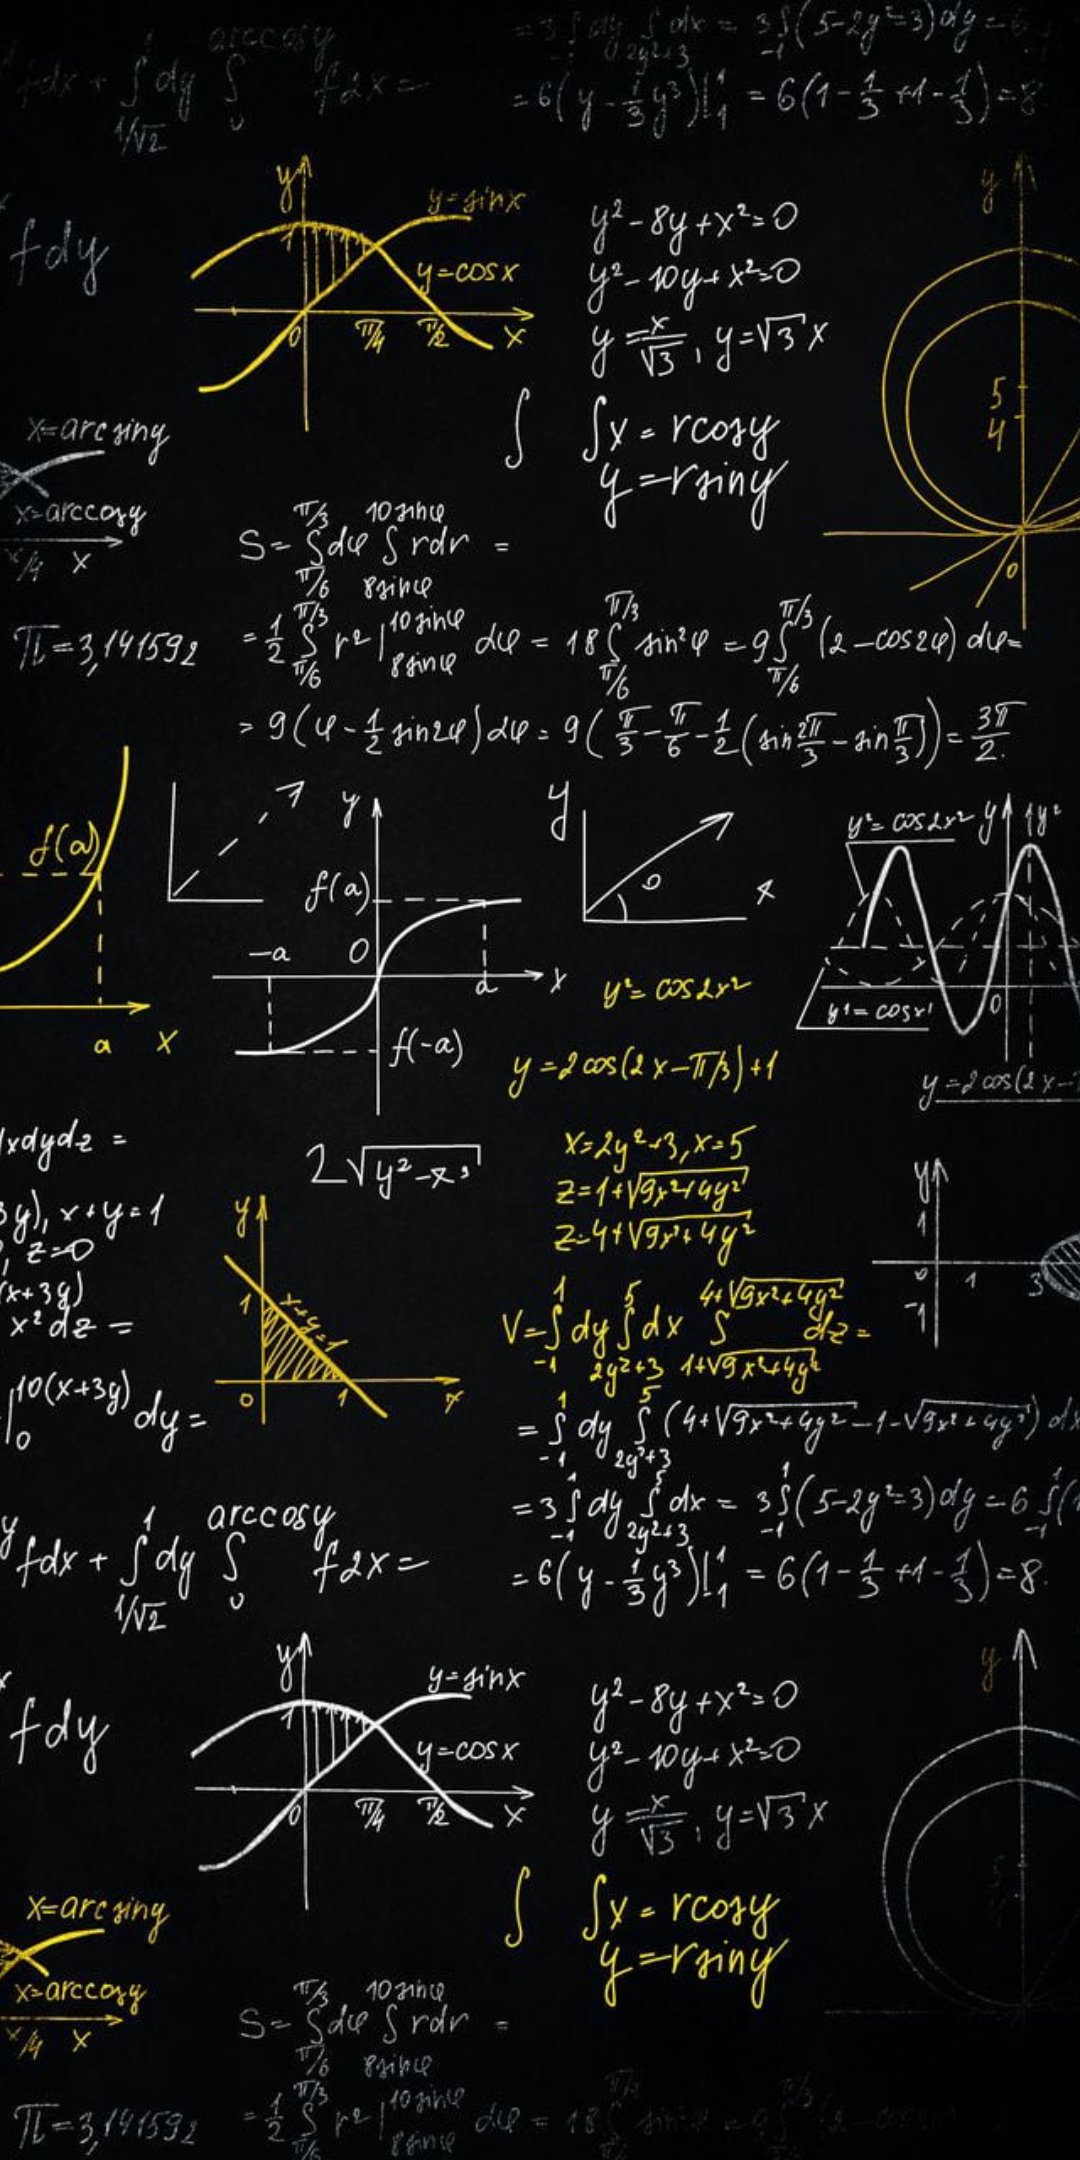 = 3 ∫₋₁¹ dy ∫_{2y²+3} dx = 3 ∫₋₁ (5-2y²=3) dy = 6
arccosy
fdx + ∫_{1/√2}^1 dy ∫_0 f2x =
= 6(y - 1/3 y³)|₁¹ = 6(1 - 1/3 +1 - 1/3) = 8
y
y=sinx
1
y=cosx
0 π/4 π/2 x
fdy
y²-8y+x²=0
y²-10y+x²=0
y=x/√3, y=√3 x
y
5
4
0
∫ ∫x = rcosy
y=rsiny
x=arcsiny
x=arccosy
x/4 x
S= ∫_{π/6}^{π/3} dφ ∫_{8sinφ}^{10sinφ} rdr =
π=3,141592
= 1/2 ∫_{π/6}^{π/3} r² |_{8sinφ}^{10sinφ} dφ = 18 ∫_{π/6}^{π/3} sin²φ = 9 ∫_{π/6}^{π/3} (2-cos2φ) dφ=
= 9(φ - 1/2 sin2φ) dφ = 9(π/3 - π/6 - 1/2 (sin 2π/3 - sin π/3)) = 3π/2.
f(a)
a x
y
f(a)
-a 0
a x
f(-a)
y
x
y²=cos2x² y y²
y¹=cosx¹ 0
y=2cos(2x-
y²=cos2x²
y=2cos(2x-π/3)+1
dxdydz =
3y), x+y=1
, z=0
(x+3y)
x²dz =
|₀^{10(x+3y)} dy =
2√y²-x³
y
1 x+y=1
0 1 x
x=2y²+3, x=5
z=1+√9x²+4y²
z=4+√9x²+4y²
y
1
0 1 3
-1
V= ∫₋₁¹ dy ∫_{2y²+3}^5 dx ∫_{1+√9x²+4y²}^{4+√9x²+4y²} dz =
= ∫₋₁¹ dy ∫_{2y²+3}^5 (4+√9x²+4y² -1-√9x²+4y²) dx
= 3 ∫₋₁¹ dy ∫_{2y²+3}^5 dx = 3 ∫₋₁¹ (5-2y²=3) dy = 6 ∫₋₁¹ (1
= 6(y - 1/3 y³)|₁¹ = 6(1 - 1/3 +1 - 1/3) = 8.
arccosy
y fdx + ∫_{1/√2}^1 dy ∫_0 f2x =
y
y=sinx
1
y=cosx
0 π/4 π/2 x
fdy
y²-8y+x²=0
y²-10y+x²=0
y=x/√3, y=√3 x
y
5
∫ ∫x = rcosy
y=rsiny
x=arcsiny
x=arccosy
x/4 x
S= ∫_{π/6}^{π/3} dφ ∫_{8sinφ}^{10sinφ} rdr =
π=3,141592
= 1/2 ∫_{π/6}^{π/3} r² |_{8sinφ}^{10sinφ} dφ = 18 ∫ sin²φ = 9 ∫ (2-cos